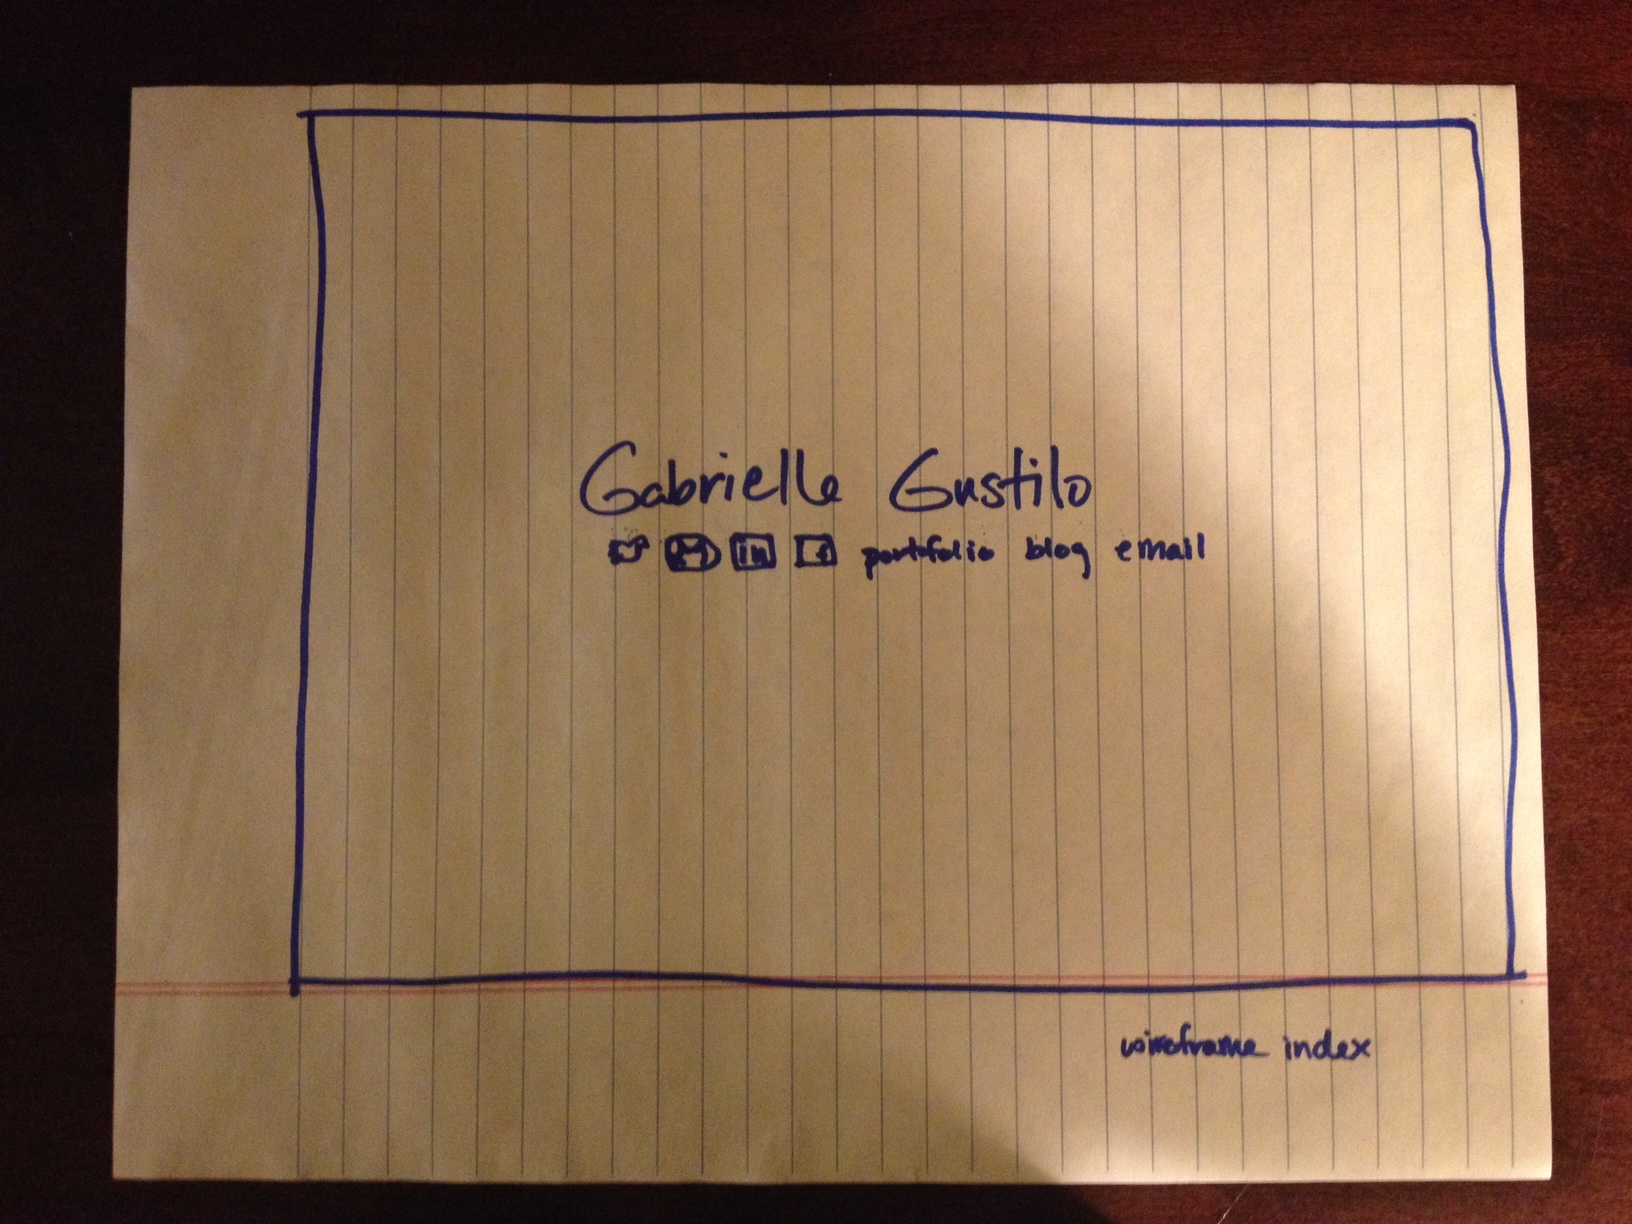 Gabrielle Gustilo
in f portfolio blog email
wireframe index